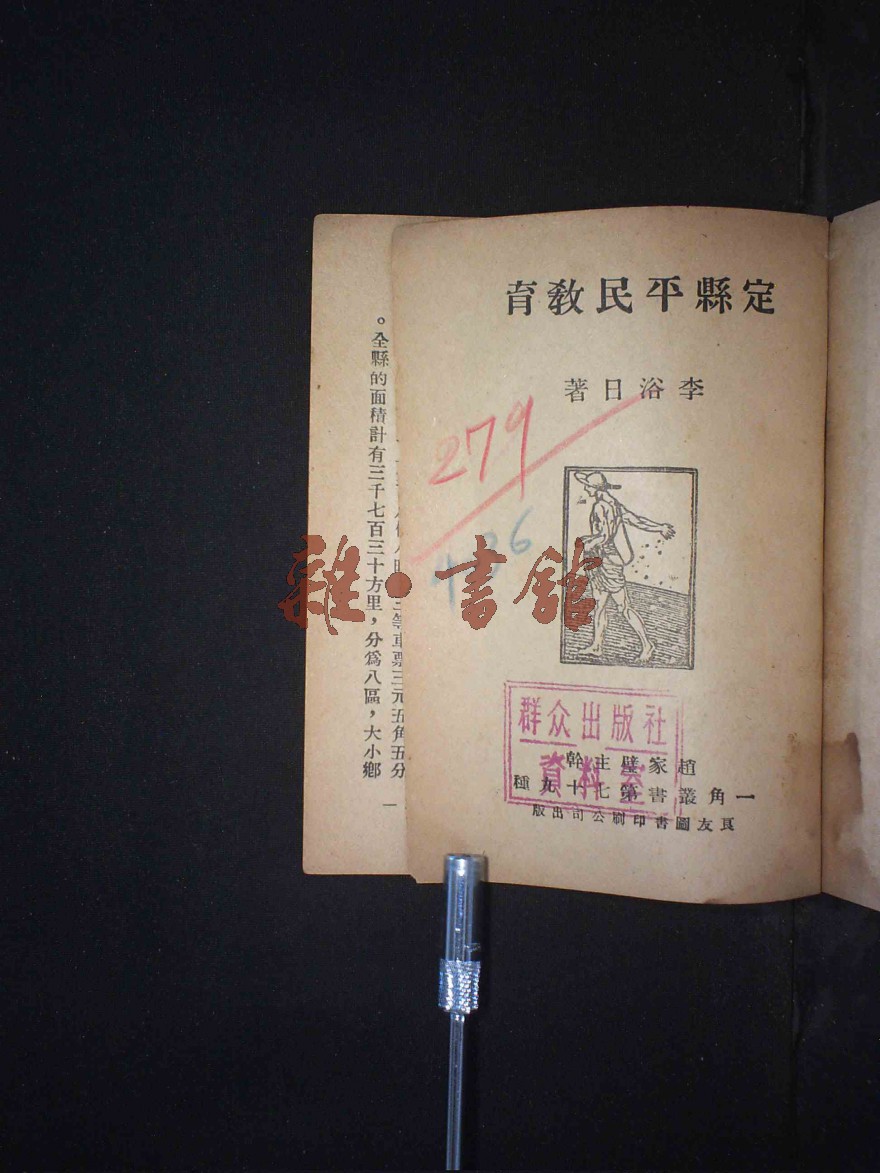 定縣平民教育
李浴日著
279
486
群众出版社
資料室
趙家璧主幹
一角叢書第七十九種
良友圖書印刷公司出版
等車票三元五角五分
。全縣的面積計有三千七百三十方里，分爲八區，大小鄉
一
雜·書館